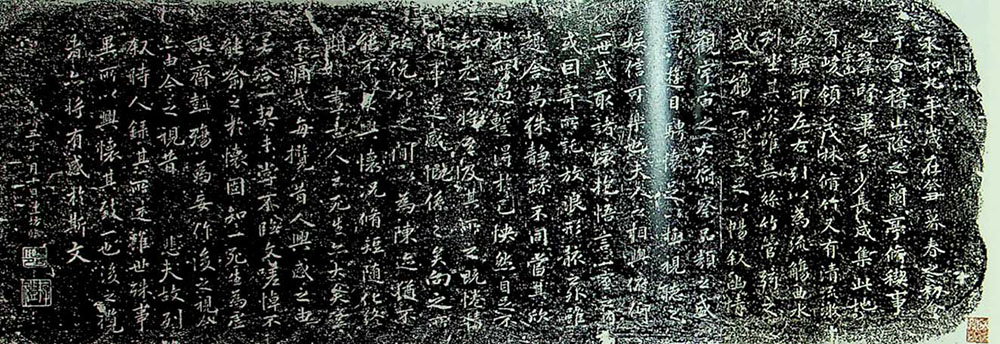 永和九年歲在癸丑暮春之初會
于會稽山陰之蘭亭脩稧事
也群賢畢至少長咸集此地
有崇山峻領茂林脩竹又有清流激
湍暎帶左右引以為流觴曲水
列坐其次雖無絲竹管弦之
盛一觴一詠亦足以暢敘幽情
觀宇宙之大俯察品類之盛
所以遊目騁懷足以極視聽之
娛信可樂也夫人之相與俯仰
一世或取諸懷抱悟言一室之內
或因寄所託放浪形骸之外雖
趣舍萬殊靜躁不同當其欣
於所遇暫得於己怏然自足不
知老之將至及其所之既惓情
隨事遷感慨係之矣向之所
欣俛仰之閒以為陳迹猶不
能不以之興懷況脩短隨化終
期於盡古人云死生亦大矣豈
不痛哉每攬昔人興感之由
若合一契未嘗不臨文嗟悼不
能喻之於懷固知一死生為虛
誕齊彭殤為妄作後之視今
亦由今之視昔悲夫故列
敘時人錄其所述雖世殊事
異所以興懷其致一也後之攬
者亦將有感於斯文